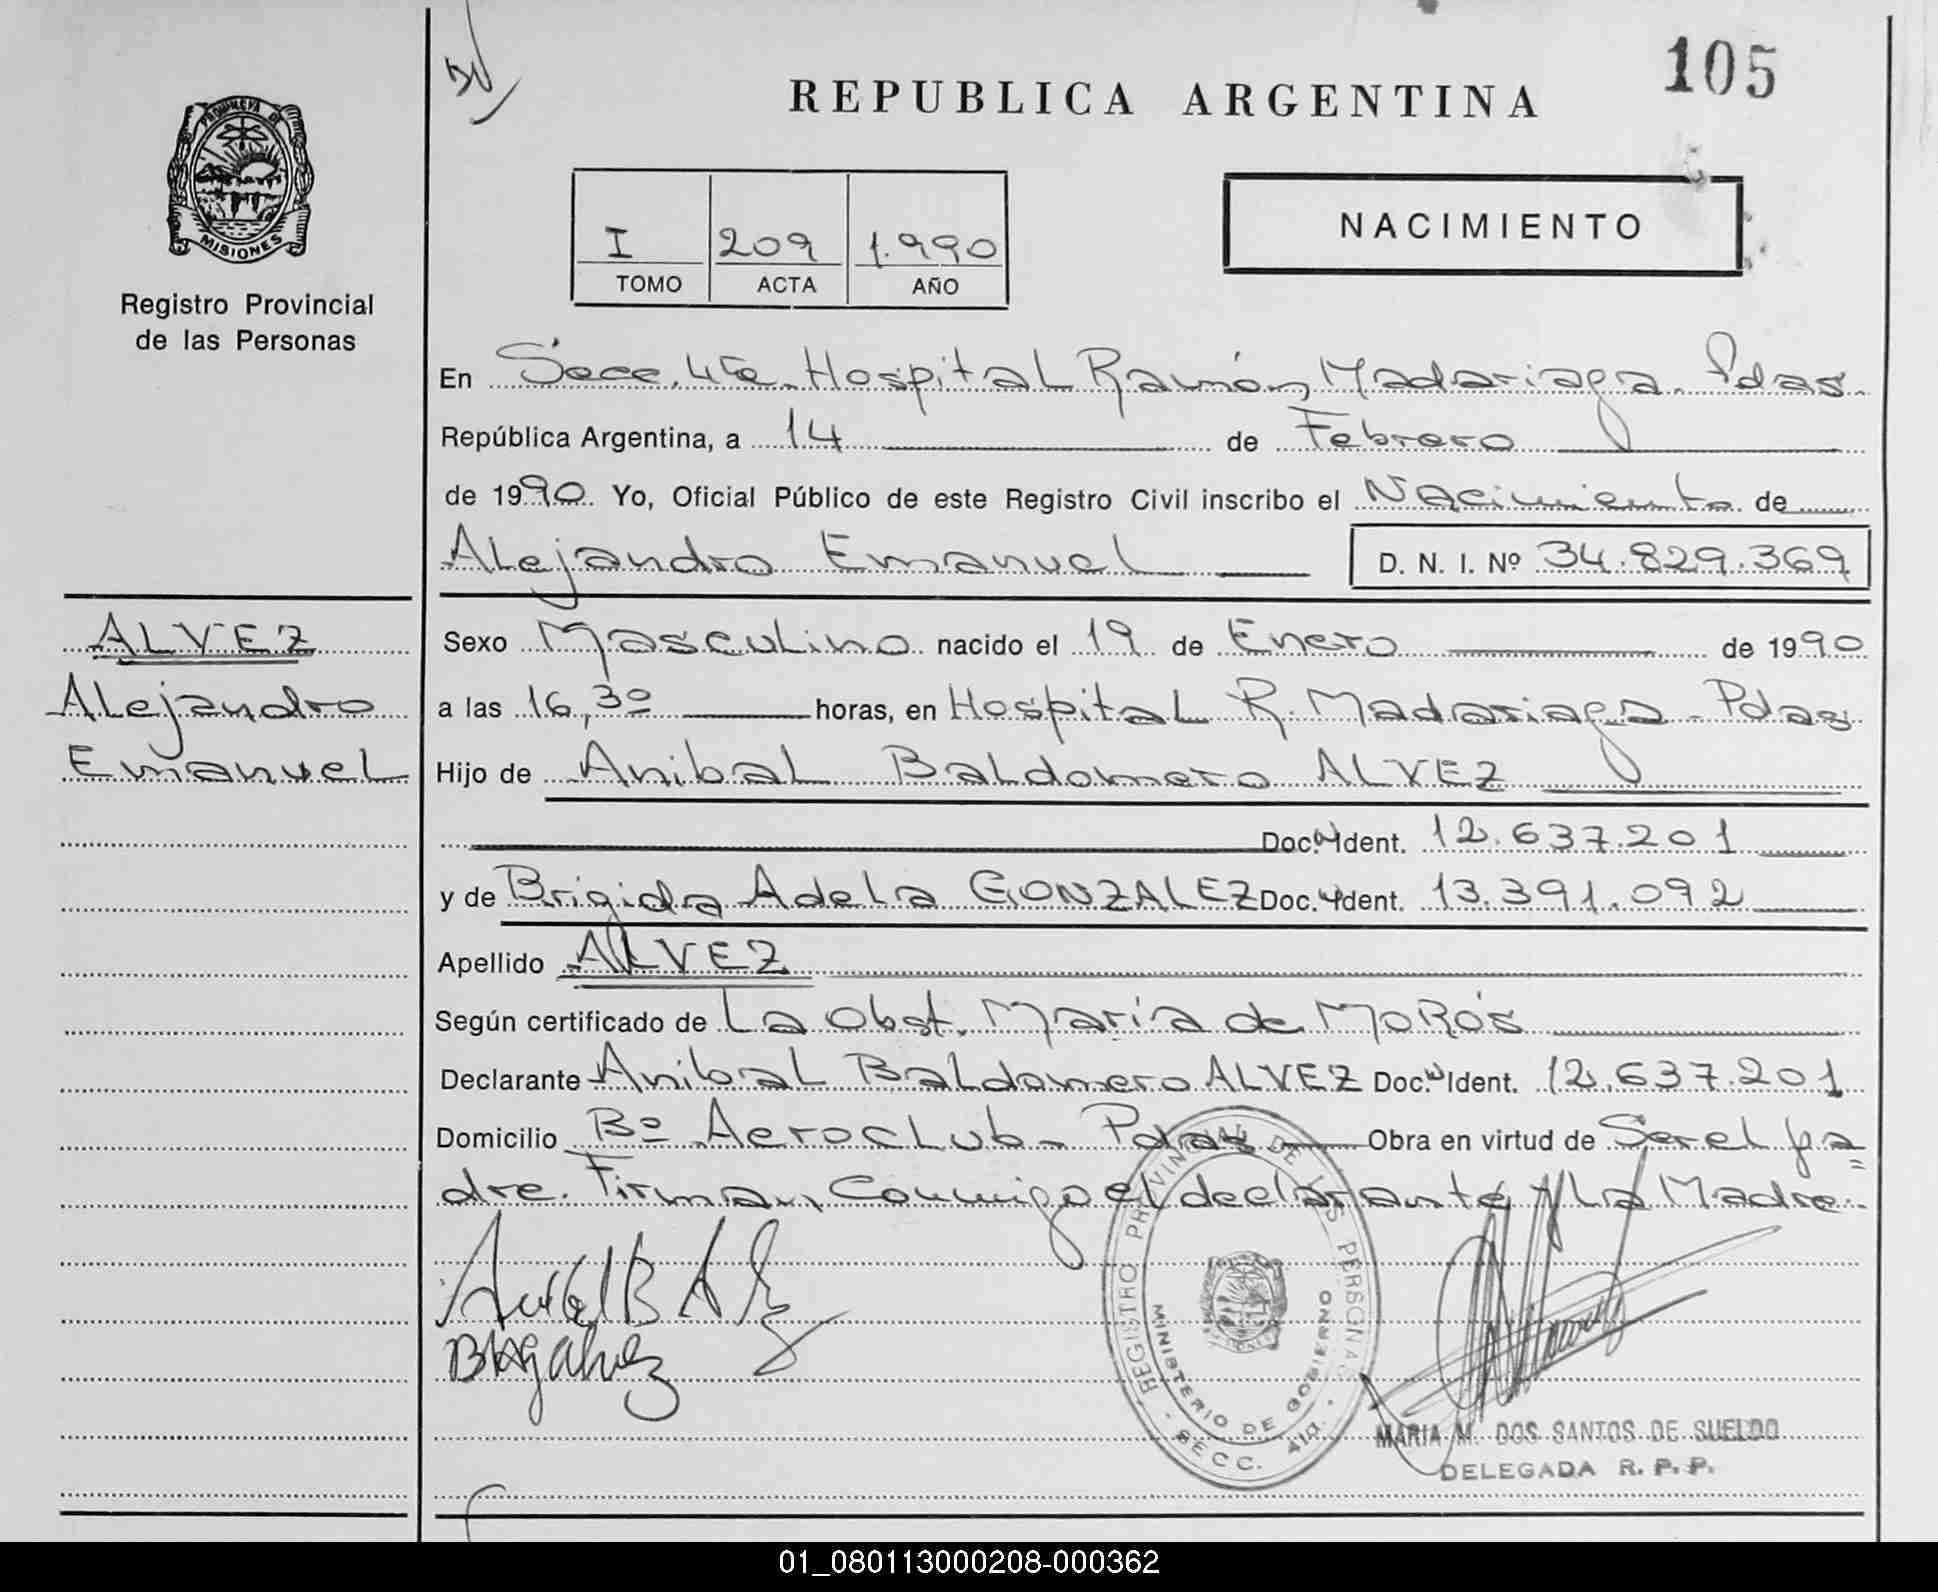 105
REPUBLICA ARGENTINA
PROVINCIA DE
MISIONES
Registro Provincial
de las Personas
I 209 1.990
TOMO ACTA AÑO
NACIMIENTO
En Secc. 4ta. Hospital Ramón Madariaga. Pdas.
República Argentina, a 14 de Febrero
de 1990. Yo, Oficial Público de este Registro Civil inscribo el Nacimiento de
Alejandro Emanuel D. N. I. Nº 34.829.369
ALVEZ
Alejandro
Emanuel
Sexo Masculino nacido el 19 de Enero de 1990
a las 16,30 horas, en Hospital R. Madariaga - Pdas
Hijo de Anibal Baldomero ALVEZ
Doc. Ident. 12.637.201
y de Brigida Adela GONZALEZ Doc. Ident. 13.391.092
Apellido ALVEZ
Según certificado de La Obst. María de MoRós
Declarante Anibal Baldomero ALVEZ Doc. Ident. 12.637.201
Domicilio Bº Aeroclub - Pdas Obra en virtud de Ser el pa
dre. Firman Conmigo el declarante y La Madre.
REGISTRO PROVINCIAL DE LAS PERSONAS
MINISTERIO DE GOBIERNO
SECC. 4ta.
MARIA M. DOS SANTOS DE SUELDO
DELEGADA R. P. P.
01_080113000208-000362